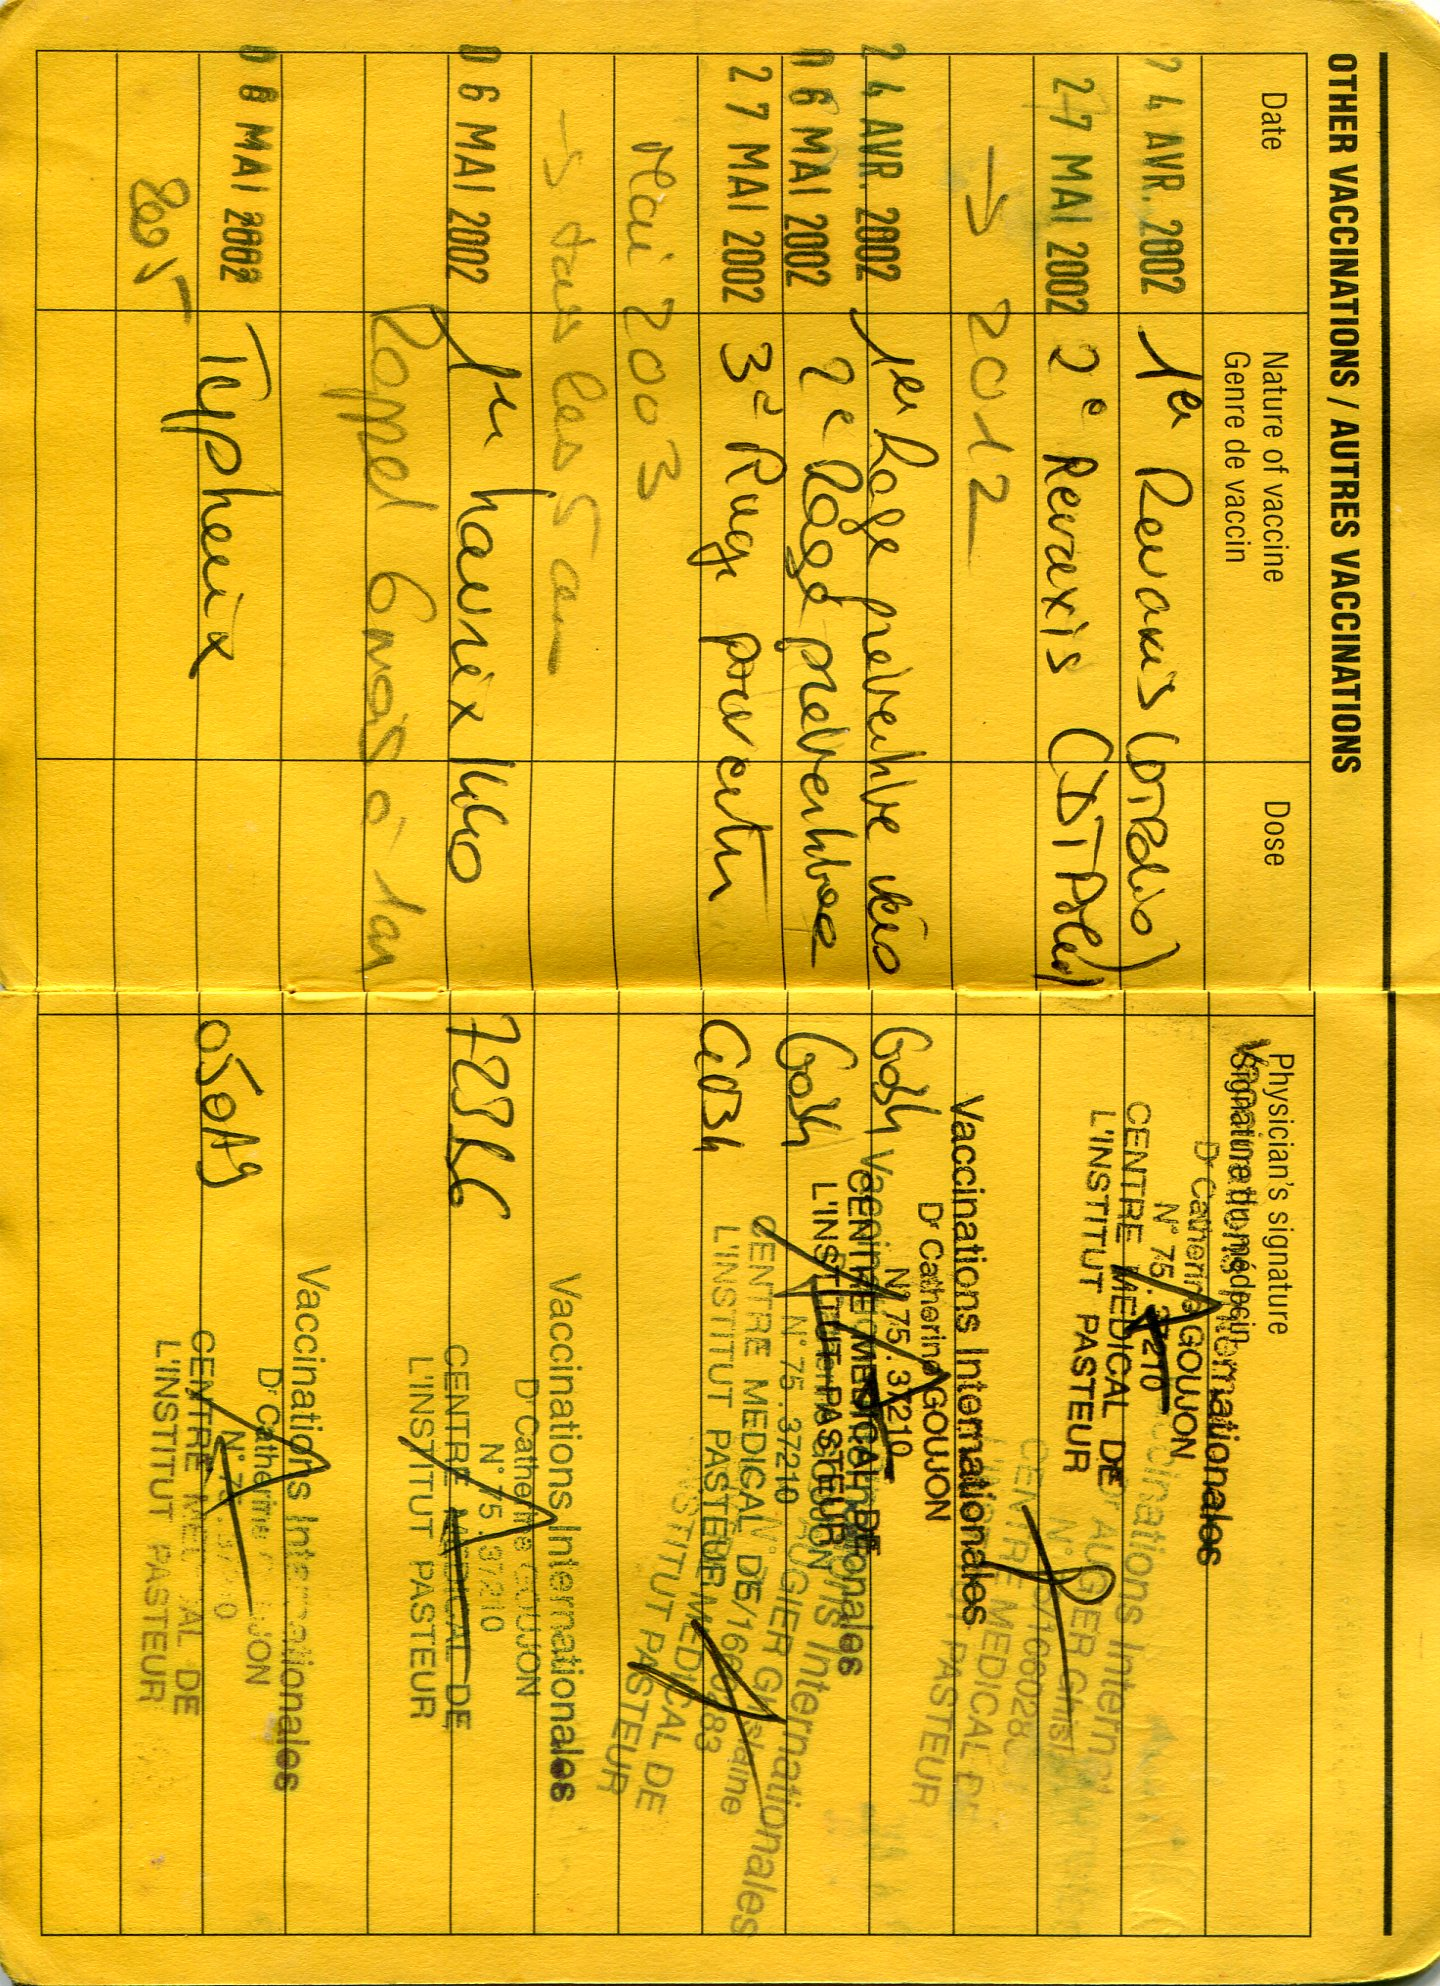 OTHER VACCINATIONS / AUTRES VACCINATIONS
Date
Nature of vaccine
Genre de vaccin
Dose
Physician's signature
Signature du médecin
24 AVR. 2002 1er Revaxis (DTPolio)
Vaccinations Internationales
Dr Catherine GOUJON
N° 75.37210
CENTRE MEDICAL DE
L'INSTITUT PASTEUR
27 MAI 2002 2e Revaxis (DTPolio)
Vaccinations Internationales
Dr AUGIER Ghislaine
CENTRE MEDICAL DE
L'INSTITUT PASTEUR
→ 2012
24 AVR. 2002 1er Rage préventive
Vaccinations Internationales
Dr Catherine GOUJON
N° 75.37210
CENTRE MEDICAL DE
L'INSTITUT PASTEUR
06 MAI 2002 2e Rage préventive
Vaccinations Internationales
N° 75.37210
CENTRE MEDICAL DE
L'INSTITUT PASTEUR
27 MAI 2002 3e Rage préventive
Vaccinations Internationales
Dr AUGIER Ghislaine
CENTRE MEDICAL DE
L'INSTITUT PASTEUR
Mai 2003
→ tous les 5 ans
06 MAI 2002 1er havrix 1440
Vaccinations Internationales
Dr Catherine GOUJON
N° 75.37210
CENTRE MEDICAL DE
L'INSTITUT PASTEUR
Rappel 6 mois à 1 an
06 MAI 2002 Typherix 050A9
Vaccinations Internationales
Dr Catherine GOUJON
N° 75.37210
CENTRE MEDICAL DE
L'INSTITUT PASTEUR
2005